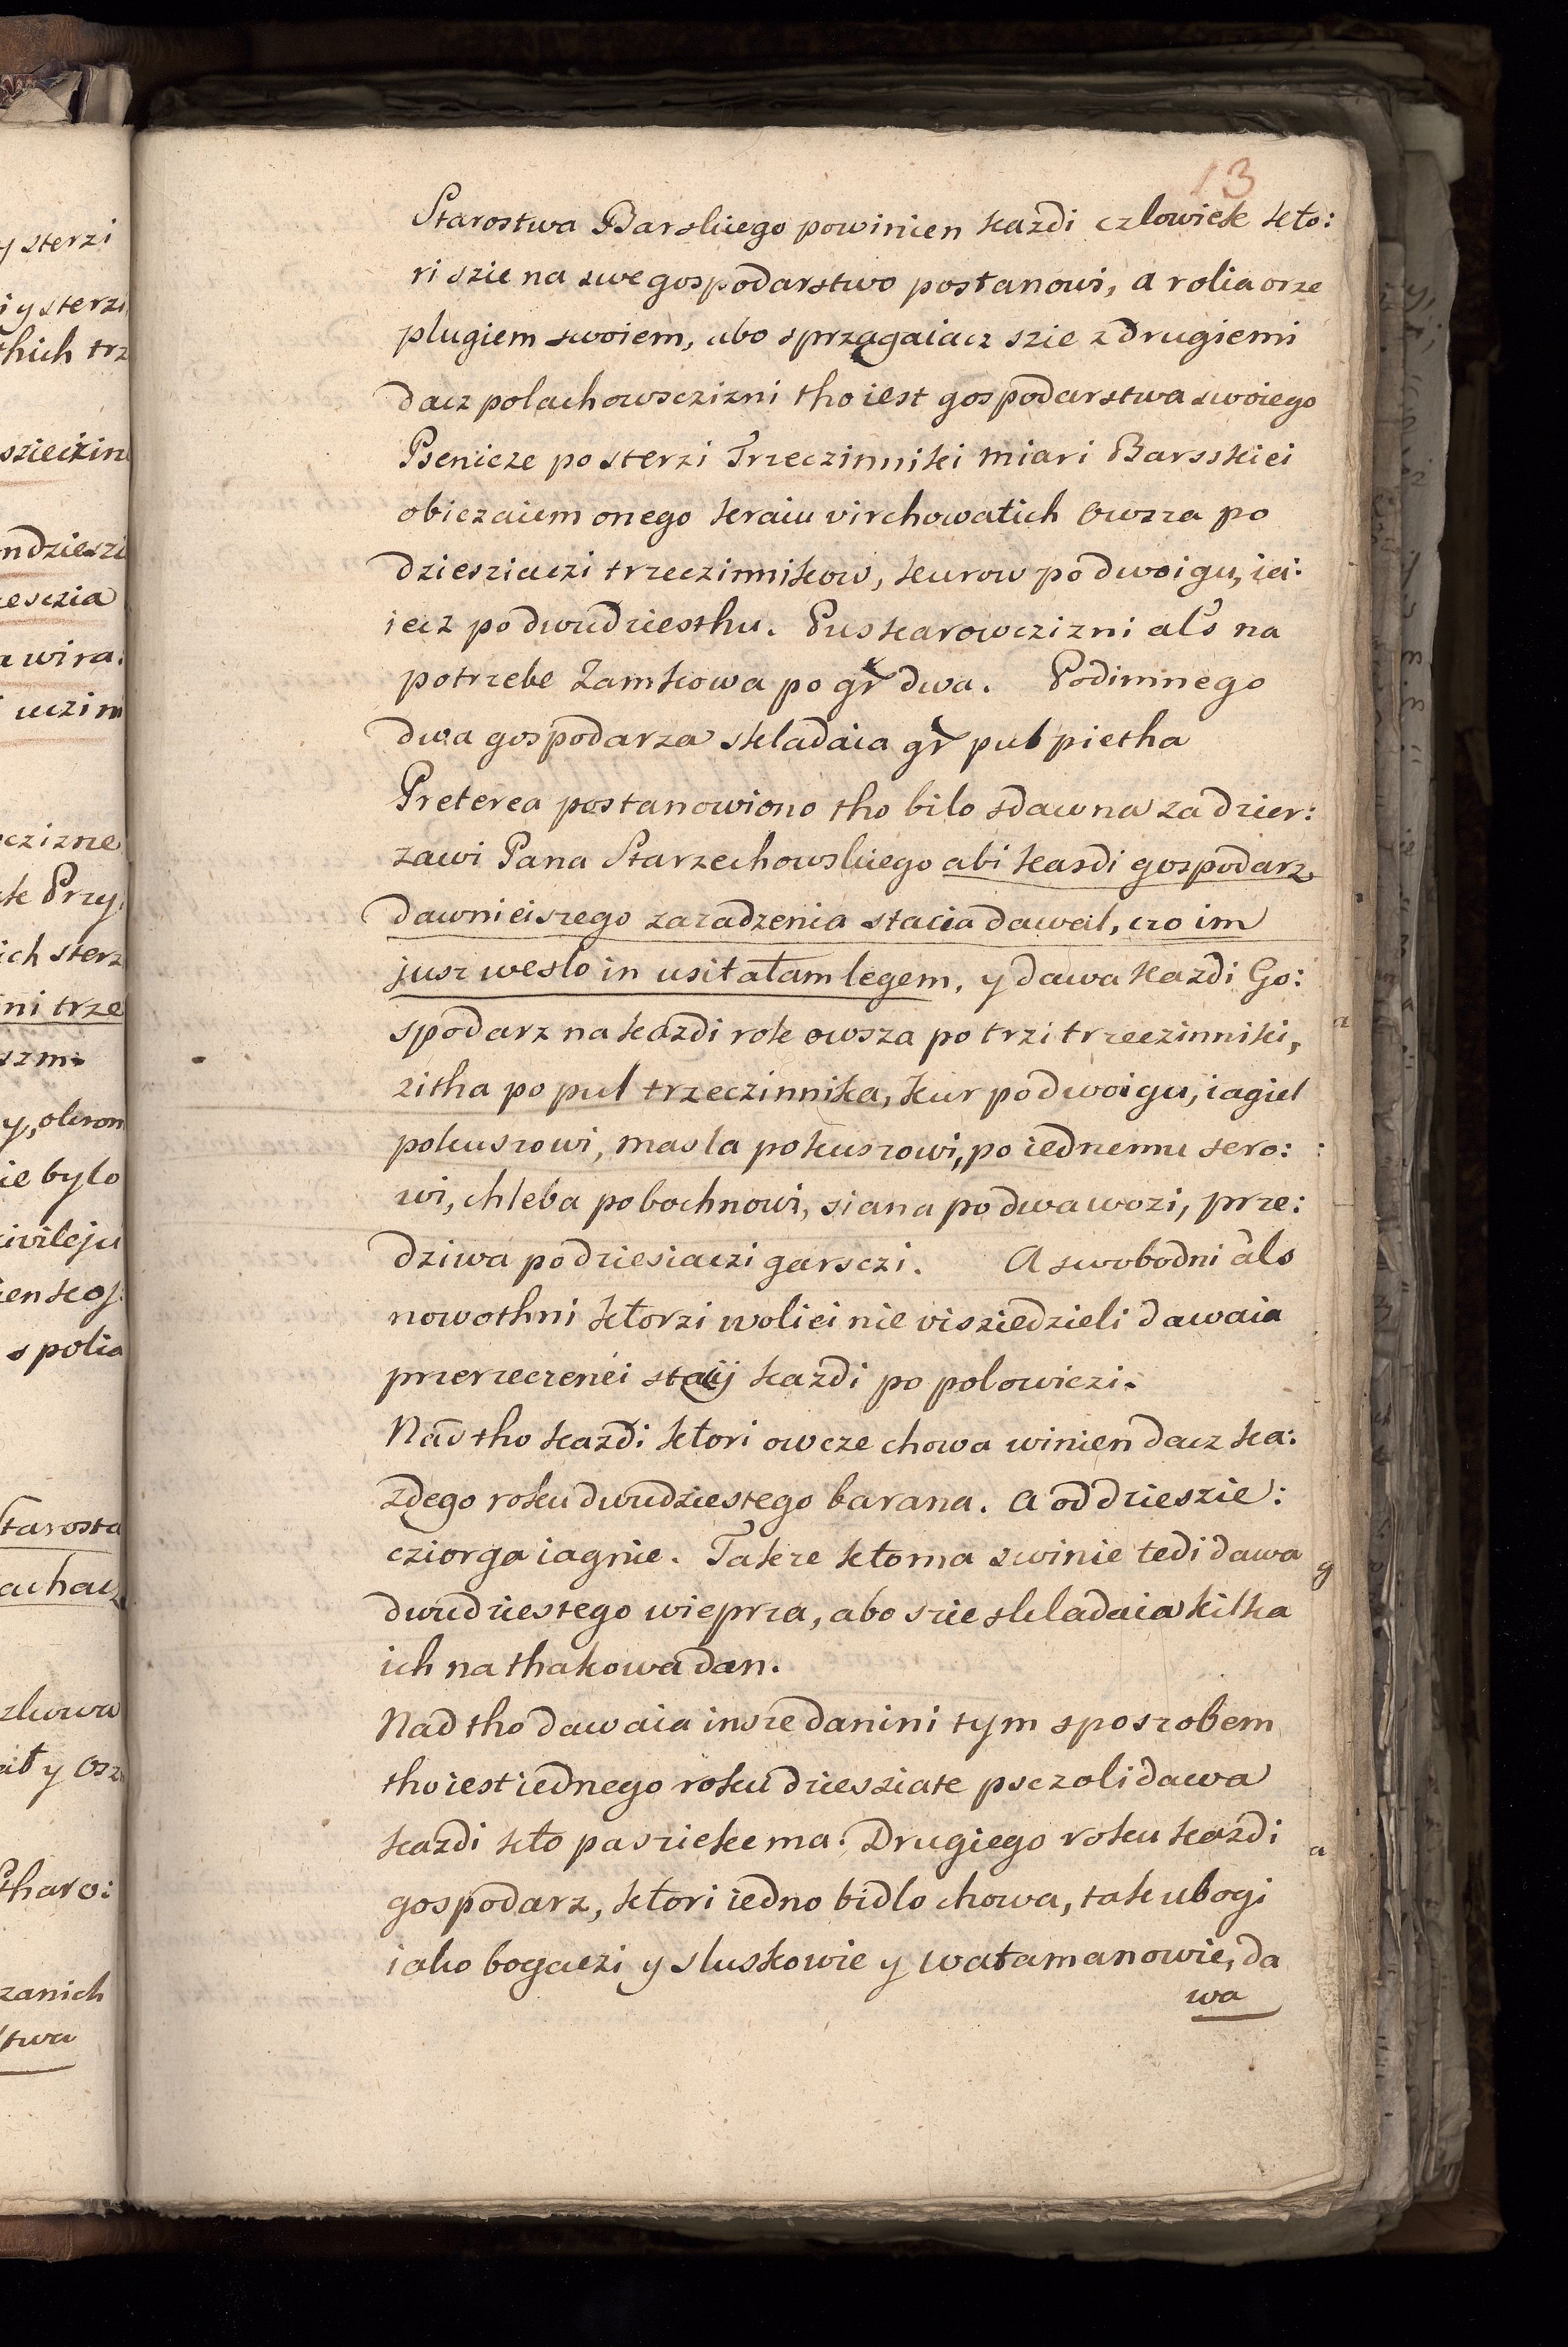 13
Starostwa Barskiego powinien każdi czlowiek kto:
ri szie na swe gospodarstwo postanowi, a rolia orze
plugiem swoiem, abo sprzągaiacz szie z drugiemi
dacz polachowsczizni tho iest gospodarstwa swoiego
Psenicze po sterzi Trzeczinniki miari Barsskiei
obiczaiem onego kraiu virchowatich Owsza po
dziesziaczi trzeczinnikow, kurow po dwoigu, iai:
iecz po dwudziesthu. Puskarowczizni als na
potrzebe Zamkowa po gr dwa. Podimnego
dwa gospodarza skladaia gr pul pietha
Preterea postanowiono tho bilo zdawna za dzier:
zawi Pana Starzechowskiego abi kasdi gospodarz
dawnieiszego zaradzenia stacia dawal, czo im
jusz weslo in usitatam legem, y dawa każdi Go:
spodarz na każdi rok owsza po trzi trzeczinniki,
zitha po pul trzeczinnika, kur po dwoigu, iagiel
po kuszowi, masla po kuszowi, po iednemu sero:
wi, chleba po bochnowi, siana po dwa wozi, prze:
dziwa po dziesiaczi garsczi. A swobodni als
nowothni ktorzi woliei nie visziedzieli dawaia
przerzeczenei stacij każdi po polowiczi.
Nad tho każdi ktori owcze chowa winien dacz ka:
zdego roku dwudziestego barana. a od dzieszie:
cziorga iagnie. Takze kto ma swinie tedi dawa
dwudziestego wieprza, abo szie skladaia kilka
ich na thakowa dan.
Nad tho dawaia insze danini tym sposzobem
tho iest iednego roku dziesziate psczoli dawa
każdi kto paszieke ma. Drugiego roku każdi
gospodarz, ktori iedno bidlo chowa, tak ubogi
iako bogaczi y sluskowie y watamanowie, da
wa